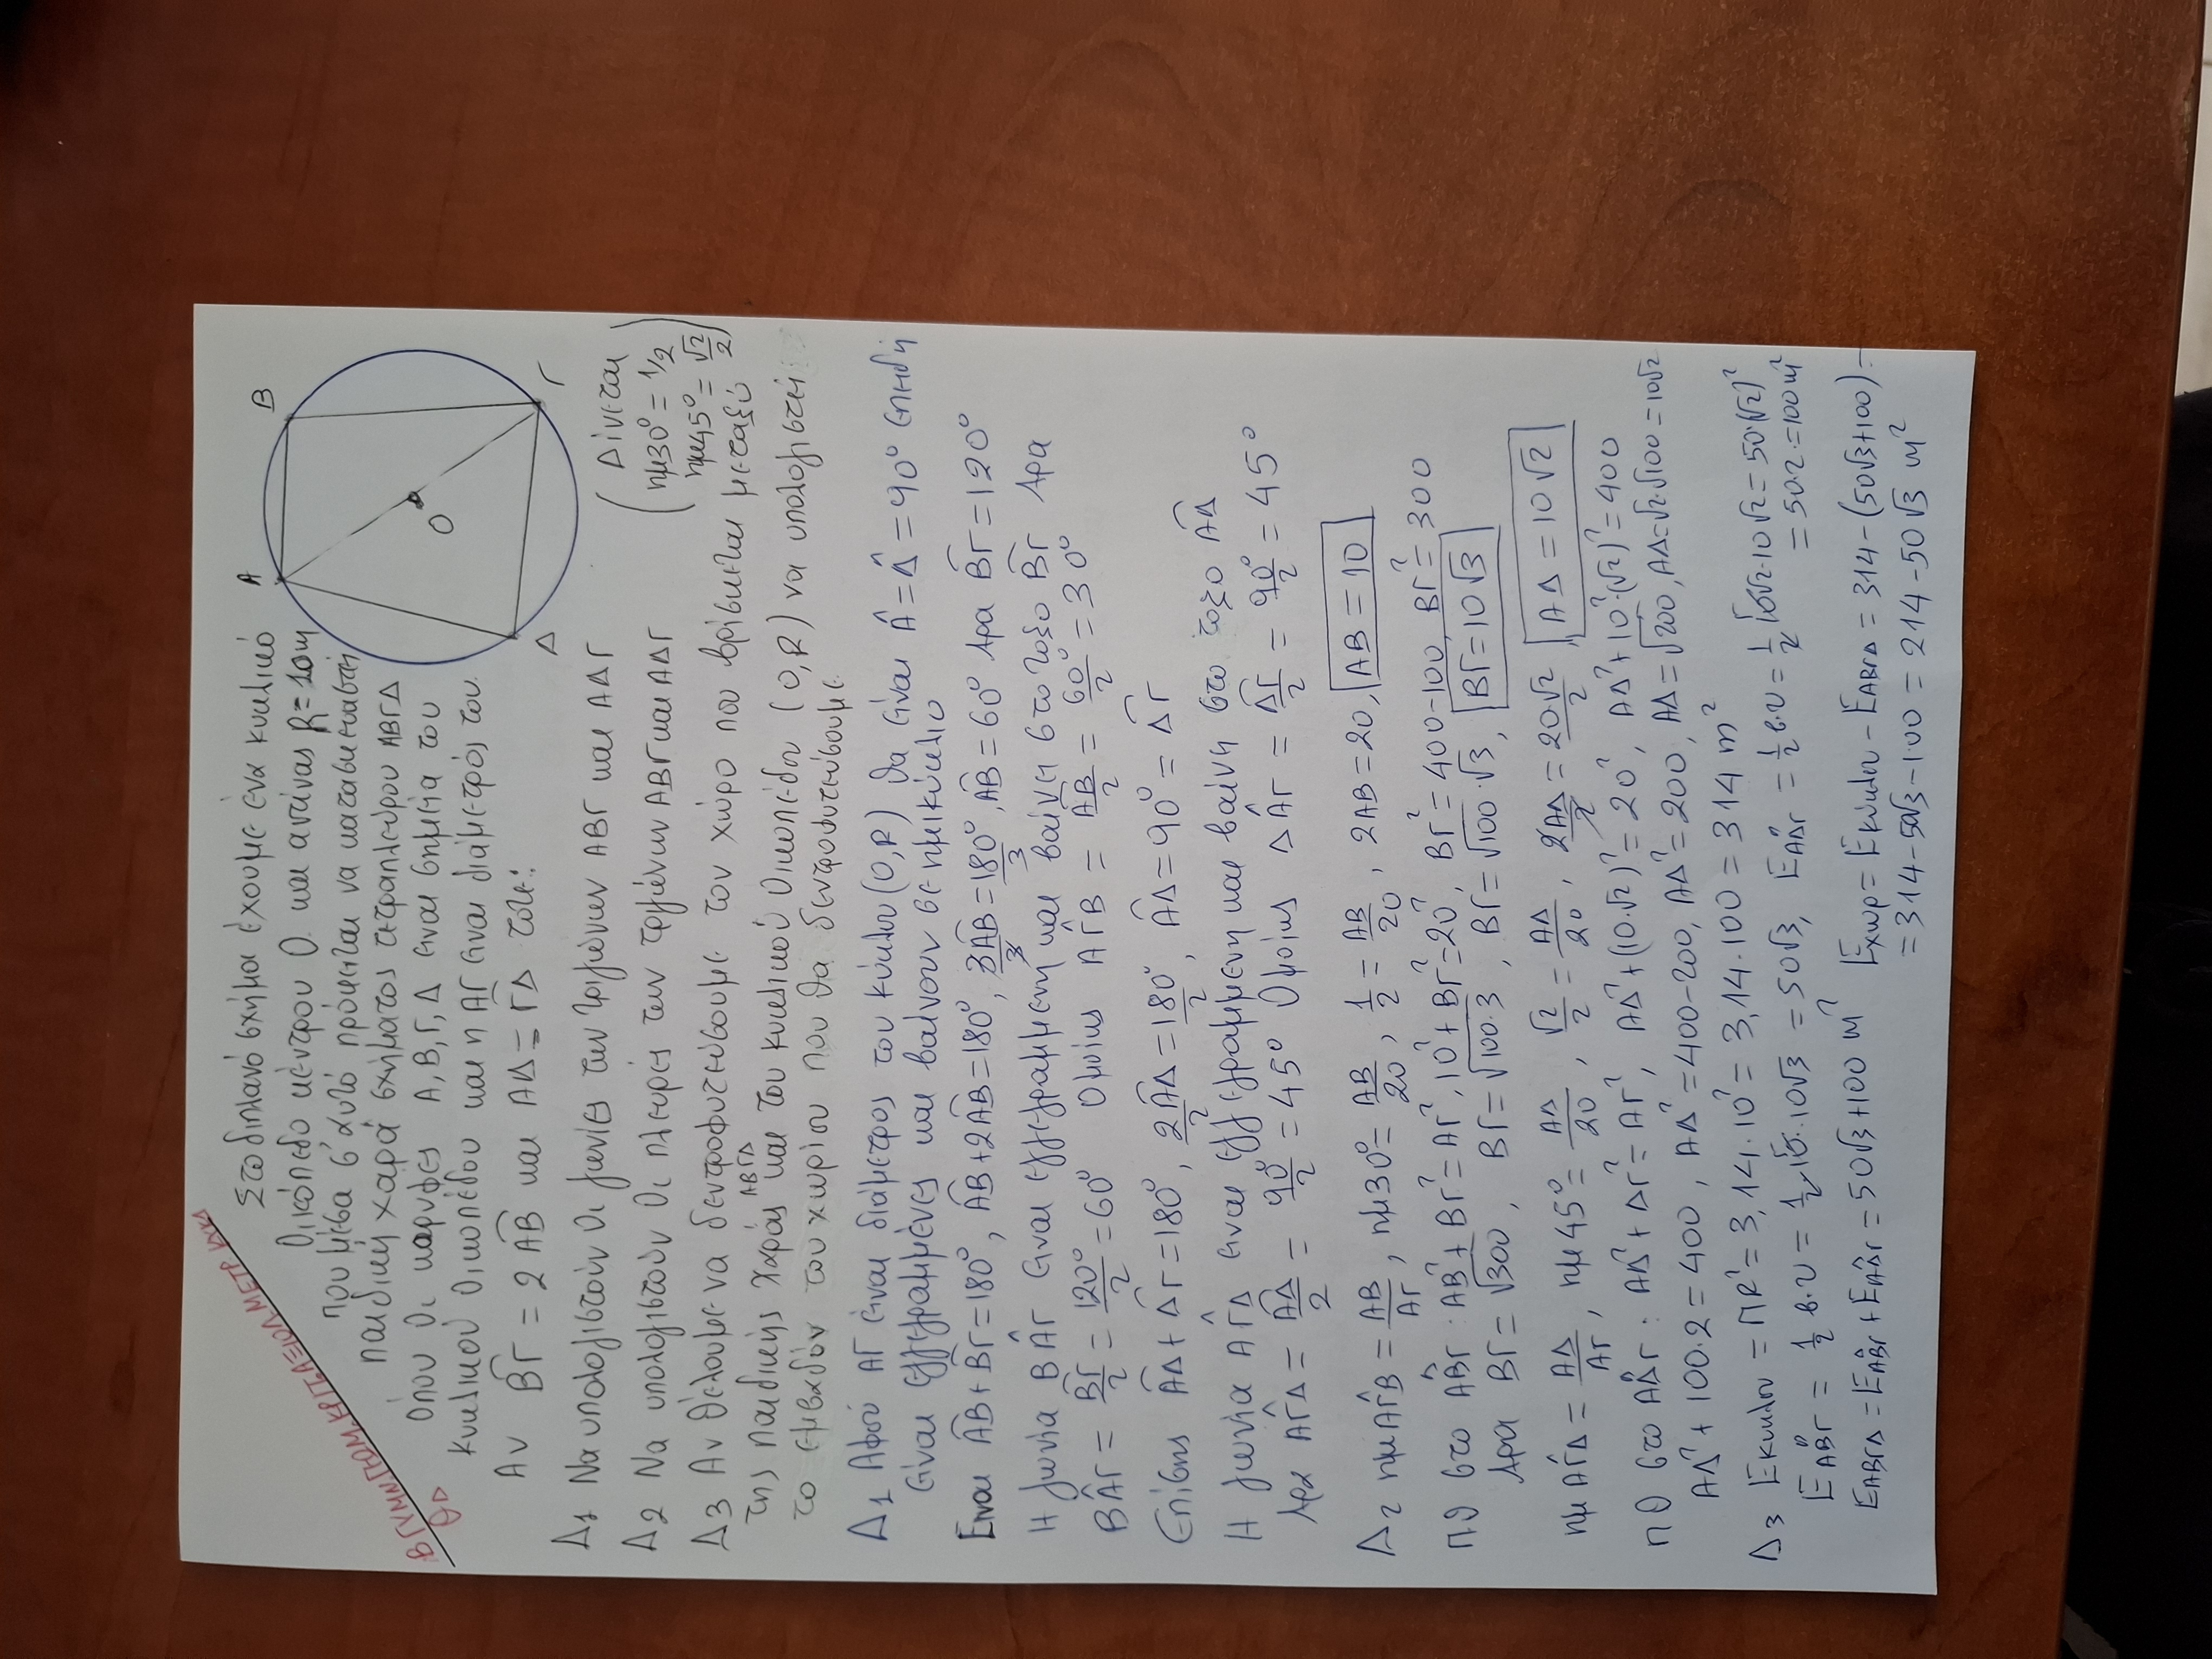 Β ΓΥΜΝ ΓΕΩΜ. ΚΕΠ. ΑΞΙΟΛ ΜΕΤΡ ΚΥΚΛ
ΘΔ
Στο διπλανό σχήμα έχουμε ένα κυκλικό
Οικόπεδο κέντρου Ο και ακτίνας R=10m
που μέσα σ' αυτό πρόκειται να κατασκευαστεί
παιδική χαρά σχήματος τετραπλεύρου ΑΒΓΔ
όπου οι κορυφές Α,Β,Γ,Δ είναι σημεία του
κυκλικού οικοπέδου και η ΑΓ είναι διάμετρός του.
Αν B͡Γ = 2 A͡B και ΑΔ = ΓΔ τότε:
Α
Β
Ο
Γ
Δ
Δ1 Να υπολογιστούν οι γωνίες των τριγώνων ΑΒΓ και ΑΔΓ
Δ2 Να υπολογιστούν οι πλευρές των τριγώνων ΑΒΓ και ΑΔΓ
(Δίνεται
ημ30° = 1/2
ημ45° = √2/2)
Δ3 Αν θέλουμε να δεντροφυτεύσουμε τον χώρο που βρίσκεται μεταξύ
της παιδικής χαράς ΑΒΓΔ και του κυκλικού οικοπέδου (Ο,R) να υπολογιστεί
το εμβαδόν του χωρίου που θα δεντροφυτεύσουμε.
Δ1 Αφού ΑΓ είναι διάμετρος του κύκλου (Ο,R) θα είναι Â = Δ̂ = 90° επειδή
είναι εγγεγραμμένες και βαίνουν σε ημικύκλιο
Είναι A͡B + B͡Γ = 180°, A͡B + 2A͡B = 180°, 3A͡B/3 = 180°/3, A͡B = 60° Άρα B͡Γ = 120°
Η γωνία ΒÂΓ είναι εγγεγραμμένη και βαίνει στο τόξο B͡Γ Άρα
ΒÂΓ = B͡Γ/2 = 120°/2 = 60° Ομοίως ΑΓ̂Β = A͡B/2 = 60°/2 = 30°
Επίσης A͡Δ + Δ͡Γ = 180°, 2A͡Δ/2 = 180°/2, A͡Δ = 90° = Δ͡Γ
Η γωνία ΑΓ̂Δ είναι εγγεγραμμένη και βαίνει στο τόξο A͡Δ
Άρα ΑΓ̂Δ = A͡Δ/2 = 90°/2 = 45° Ομοίως ΔÂΓ = Δ͡Γ/2 = 90°/2 = 45°
Δ2 ημΑΓ̂Β = ΑΒ/ΑΓ, ημ30° = ΑΒ/20, 1/2 = ΑΒ/20, 2ΑΒ = 20, ΑΒ = 10
ΠΘ στο ΑΒ̂Γ: ΑΒ² + ΒΓ² = ΑΓ², 10² + ΒΓ² = 20², ΒΓ² = 400-100, ΒΓ² = 300
Άρα ΒΓ = √300, ΒΓ = √100·3, ΒΓ = √100·√3, ΒΓ = 10√3
ημΑΓ̂Δ = ΑΔ/ΑΓ, ημ45° = ΑΔ/20, √2/2 = ΑΔ/20, 2ΑΔ/2 = 20√2/2, ΑΔ = 10√2
ΠΘ στο ΑΔ̂Γ: ΑΔ² + ΔΓ² = ΑΓ², ΑΔ² + (10·√2)² = 20², ΑΔ² + 10²·(√2)² = 400
ΑΔ² + 100·2 = 400, ΑΔ² = 400-200, ΑΔ² = 200, ΑΔ = √200, ΑΔ = √2·√100 = 10√2
Δ3 Εκυκλου = ΠR² = 3,14·10² = 3,14·100 = 314 m²
ΕΑΒ̂Γ = 1/2 β·υ = 1/2·10·10√3 = 50√3, ΕΑΔ̂Γ = 1/2 β·υ = 1/2 10√2·10√2 = 50·(√2)²
= 50·2 = 100 m²
ΕΑΒΓΔ = ΕΑΒ̂Γ + ΕΑΔ̂Γ = 50√3 + 100 m² Εχωρ = Εκύκλου - ΕΑΒΓΔ = 314 - (50√3+100) =
= 314 - 50√3 - 100 = 214 - 50√3 m²